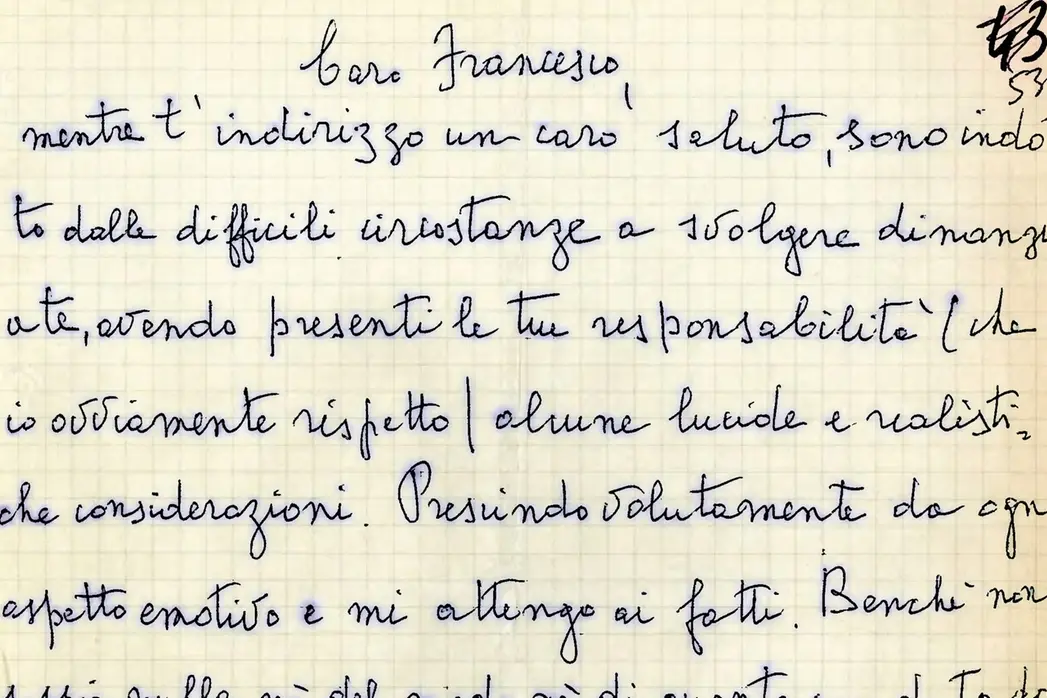 53
Caro Francesco,
mentre t'indirizzo un caro saluto, sono indo
to dalle difficili circostanze a svolgere dinanzi
a te, avendo presenti le tue responsabilità (che
io ovviamente rispetto) alcune lucide e realisti=
che considerazioni. Prescindo volutamente da ogni
aspetto emotivo e mi attengo ai fatti. Benchè non